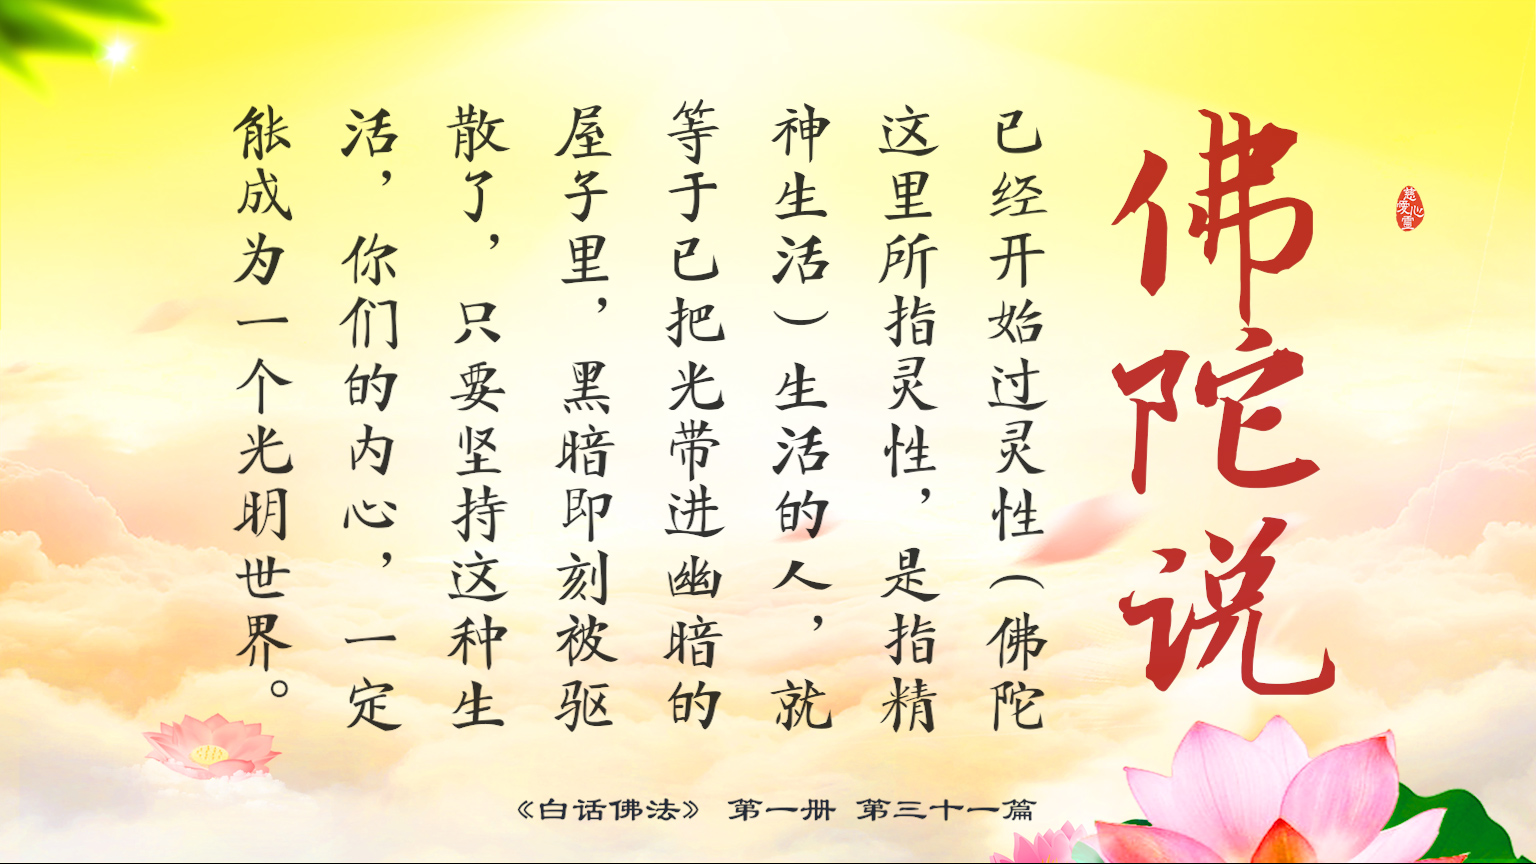 慈心
愛靈
佛陀说
已经开始过灵性（佛陀
这里所指灵性，是指精
神生活）生活的人，就
等于已把光带进幽暗的
屋子里，黑暗即刻被驱
散了，只要坚持这种生
活，你们的内心，一定
能成为一个光明世界。
《白话佛法》 第一册 第三十一篇